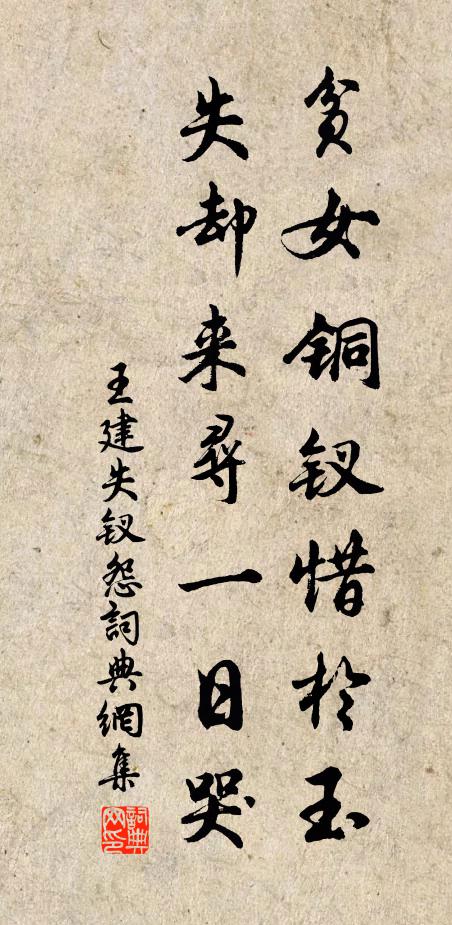 贫女铜钗惜於玉
失却来寻一日哭
王建失钗怨詞典網集
詞典网印